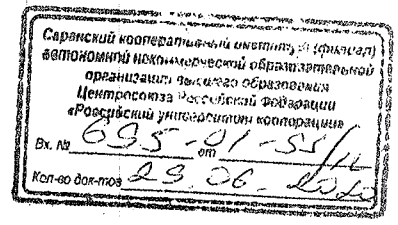 Саранский кооперативный институт (филиал)
автономной некоммерческой образовательной
организации высшего образования
Центросоюза Российской Федерации
«Российский университет кооперации»
Вх. № 695-01-55/ от
Кол-во док-тов 29.06.2020